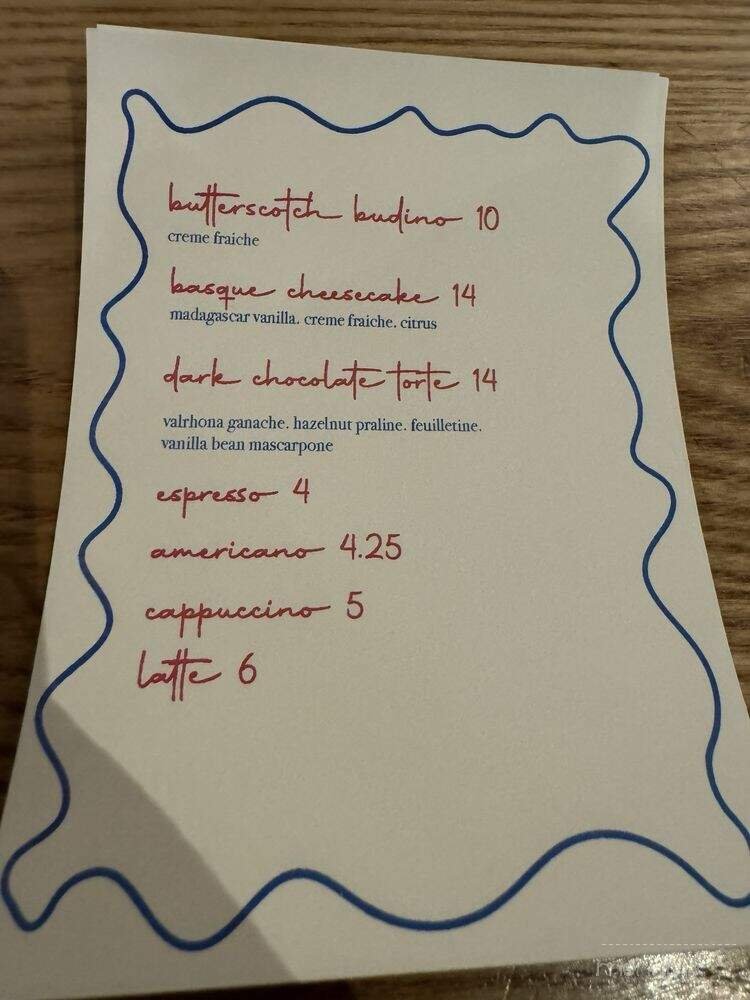 butterscotch budino 10
creme fraiche
basque cheesecake 14
madagascar vanilla. creme fraiche. citrus
dark chocolate torte 14
valrhona ganache. hazelnut praline. feuilletine.
vanilla bean mascarpone
espresso 4
americano 4.25
cappuccino 5
latte 6